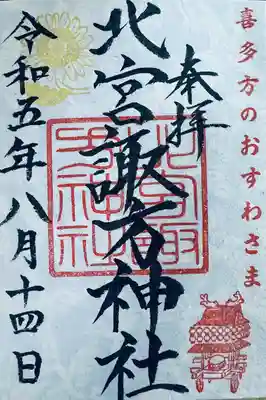 喜多方のおすわさま
奉拝
北宮諏方神社
令和五年八月十四日